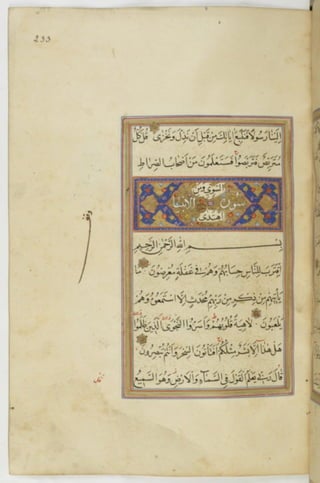 233
اِلَيْنَا رَسُولًا فَنَتَّبِعَ اٰيَاتِكَ مِنْ قَبْلِ اَنْ نَذِلَّ وَنَخْزٰى قُلْ كُلٌّ
مُتَرَبِّصٌ فَتَرَبَّصُوا فَسَتَعْلَمُونَ مَنْ اَصْحَابُ الصِّرَاطِ
السَّوِيِّ وَمَنِ
سورة الانبيا
اهْتَدٰى
بِسْمِ اللّٰهِ الرَّحْمٰنِ الرَّحِيمِ
اِقْتَرَبَ لِلنَّاسِ حِسَابُهُمْ وَهُمْ فِي غَفْلَةٍ مُعْرِضُونَ مَا
يَأْتِيهِمْ مِنْ ذِكْرٍ مِنْ رَبِّهِمْ مُحْدَثٍ اِلَّا اسْتَمَعُوهُ وَهُمْ
يَلْعَبُونَ لَاهِيَةً قُلُوبُهُمْ وَاَسَرُّوا النَّجْوَى الَّذِينَ ظَلَمُوا
هَلْ هٰذَا اِلَّا بَشَرٌ مِثْلُكُمْ اَفَتَأْتُونَ السِّحْرَ وَاَنْتُمْ تُبْصِرُونَ
قَالَ رَبِّي يَعْلَمُ الْقَوْلَ فِي السَّمَاءِ وَالْاَرْضِ وَهُوَ السَّمِيعُ
وقف